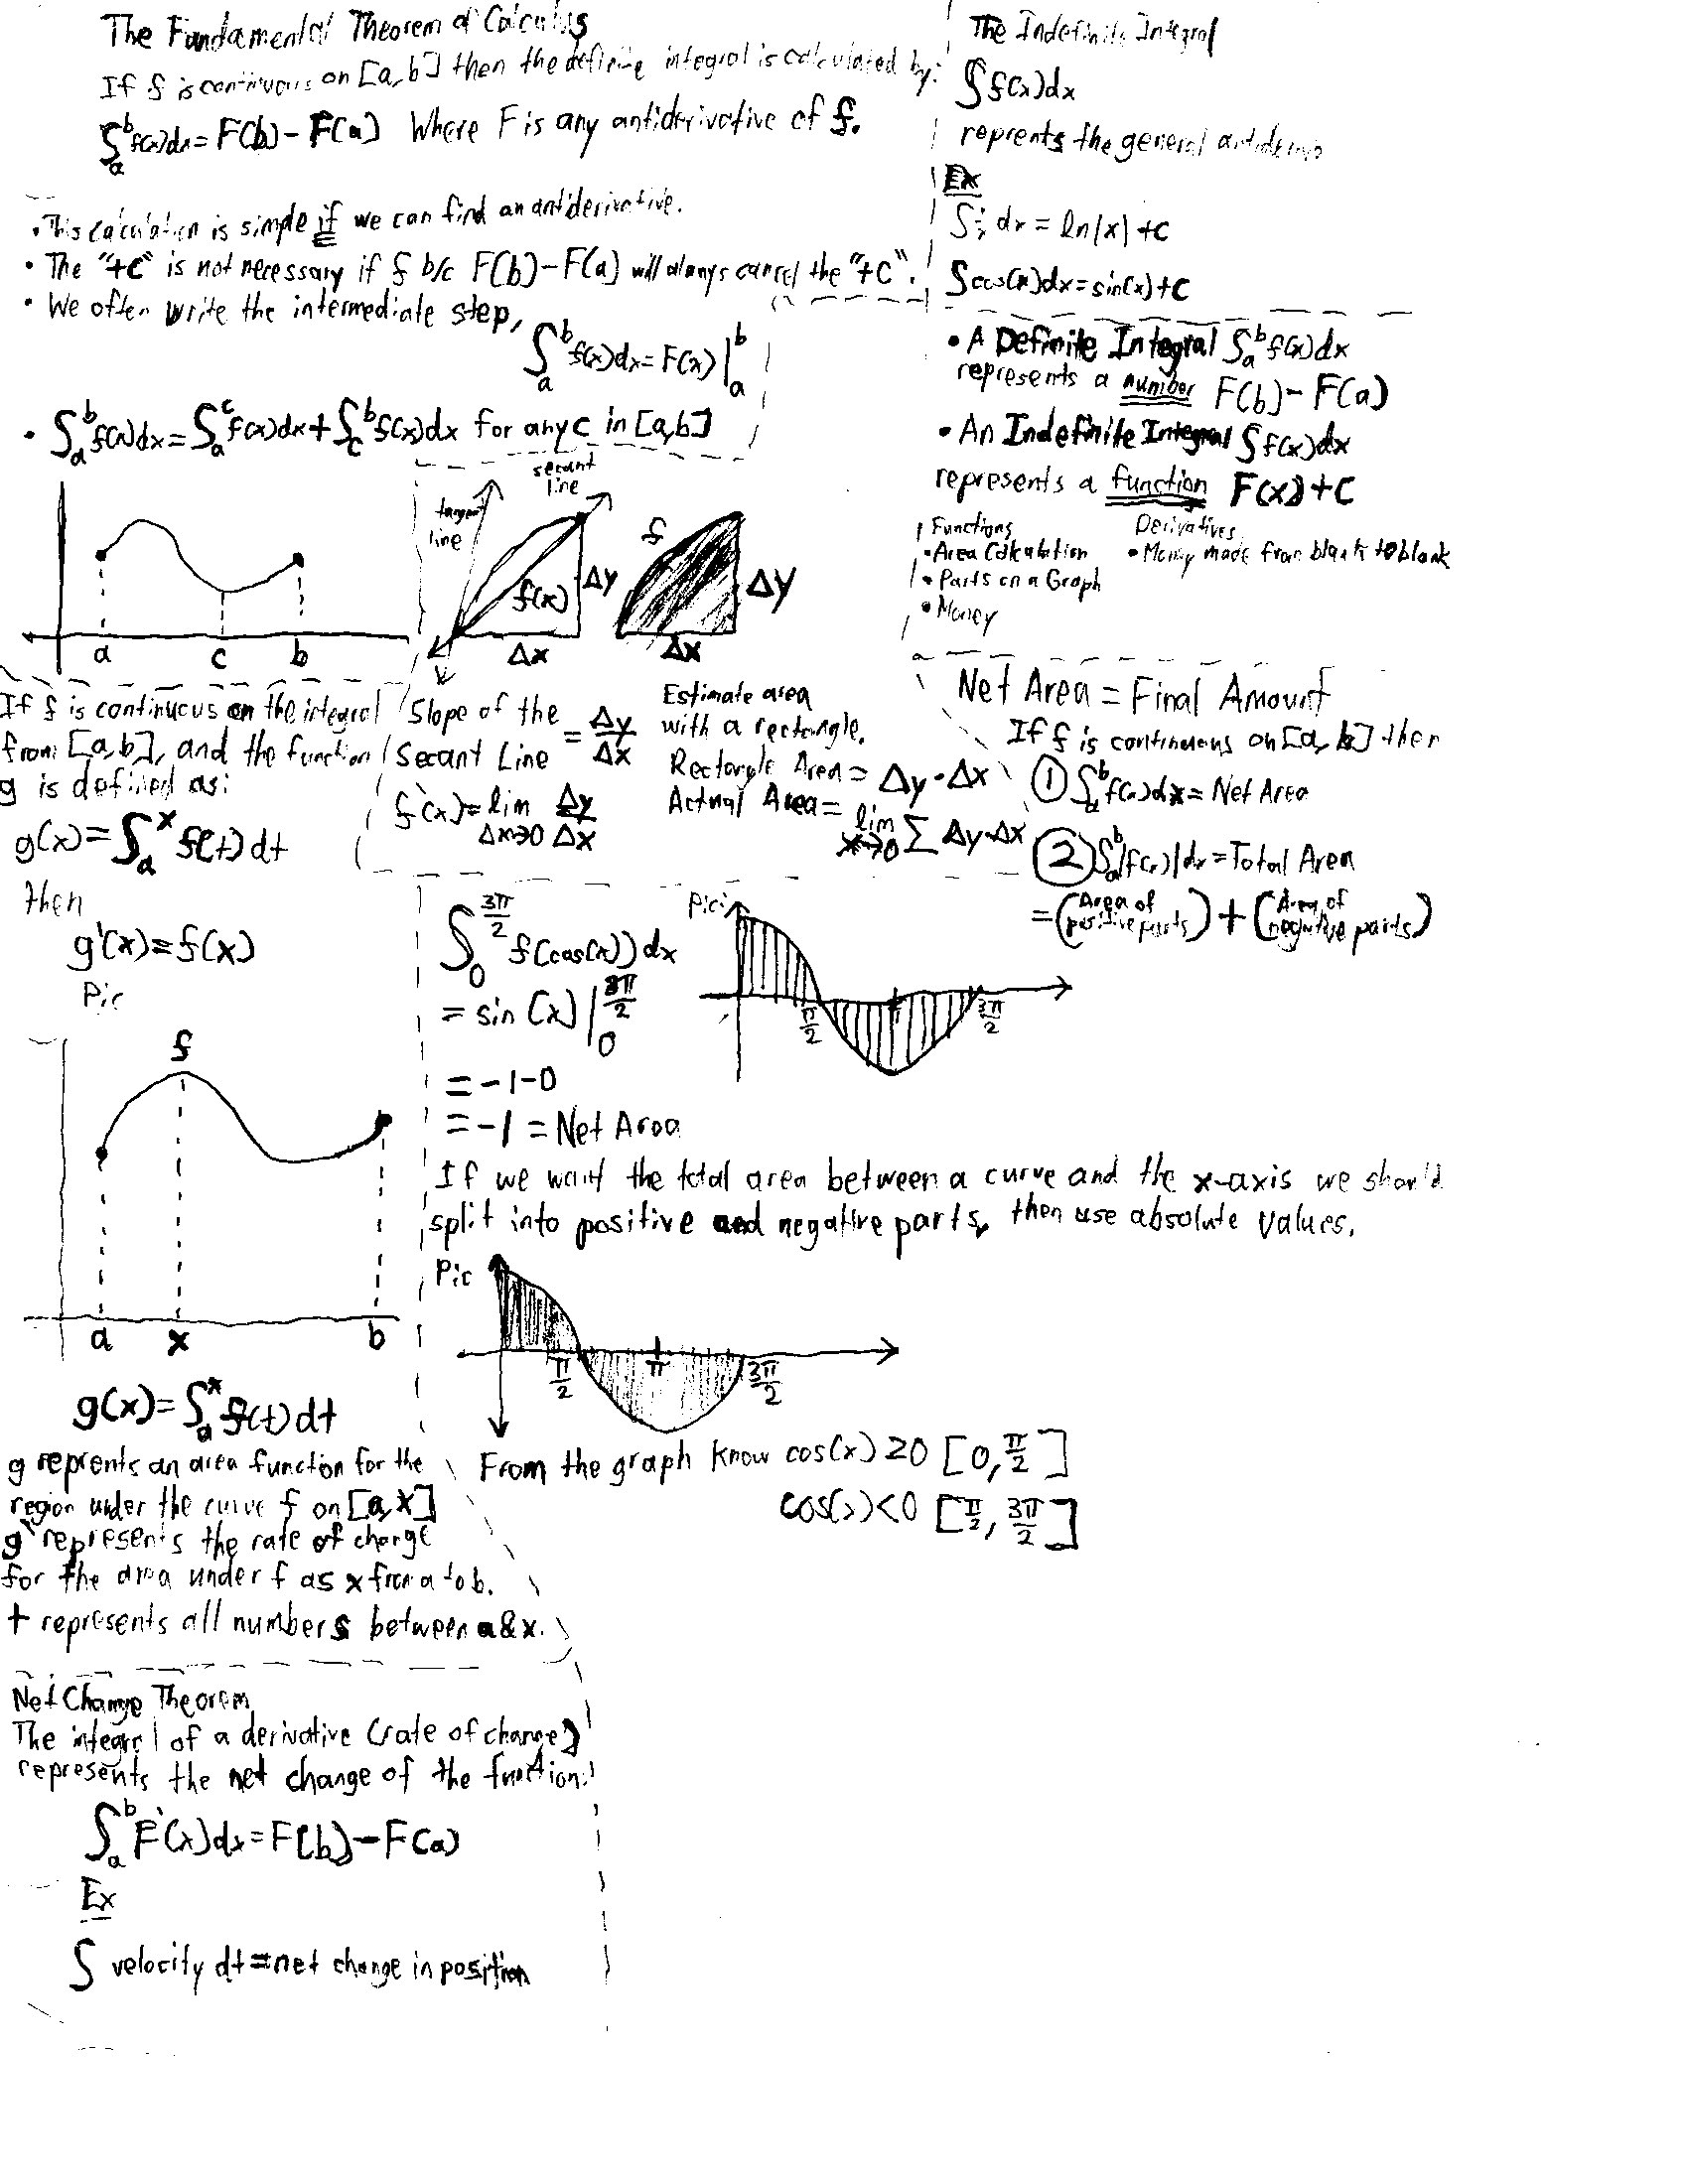 The Fundamental Theorem of Calculus
If f is continuous on [a,b] then the definite integral is calculated by:
∫_a^b f(x)dx = F(b) - F(a) Where F is any antiderivative of f.
• This calculation is simple if we can find an antiderivative.
• The "+C" is not necessary if f b/c F(b)-F(a) will always cancel the "+C".
• We often write the intermediate step,
∫_a^b f(x)dx = F(x)|_a^b
• ∫_a^b f(x)dx = ∫_a^c f(x)dx + ∫_c^b f(x)dx for any c in [a,b]
a c b
The Indefinite Integral
∫f(x)dx
reprents the general
Ex
dx = ln|x| + C
∫cos(x)dx = sin(x)+C
• A Definite Integral ∫_a^b f(x)dx
represents a number F(b) - F(a)
• An Indefinite Integral ∫f(x)dx
represents a function F(x)+C
Functions
• Area Calculation
• Parts on a Graph
• Money
Derivatives
• Money made from blank to blank
secant
line
tangent
line
f(x)
Δy
Δx
f
Δy
Δx
Slope of the
Secant Line = Δy/Δx
f'(x) = lim_{Δx→0} Δy/Δx
Estimate area
with a rectangle.
Rectangle Area = Δy·Δx
Actual Area = lim_{x→0} Σ Δy·Δx
Net Area = Final Amount
If f is continuous on [a,b] then
① ∫_a^b f(x)dx = Net Area
② ∫_a^b |f(x)|dx = Total Area
= (Area of positive parts) + (Area of negative parts)
If f is continuous on the integral
from [a,b], and the function
g is defined as:
g(x) = ∫_a^x f(t)dt
then
g'(x) = f(x)
Pic
f
a x b
g(x) = ∫_a^x f(t)dt
g reprents an area function for the
region under the curve f on [a,x]
g' represents the rate of change
for the area under f as x from a to b.
t represents all numbers between a&x.
∫_0^{3π/2} f(cos(x))dx
= sin(x)|_0^{3π/2}
= -1-0
= -1 = Net Area
Pic:
π/2 π 3π/2
If we want the total area between a curve and the x-axis we should
split into positive and negative parts, then use absolute values.
Pic
π/2 π 3π/2
From the graph know cos(x) ≥ 0 [0, π/2]
cos(x) < 0 [π/2, 3π/2]
Net Change Theorem
The integral of a derivative (rate of change)
represents the net change of the function:
∫_a^b F'(x)dx = F(b) - F(a)
Ex
∫ velocity dt = net change in position